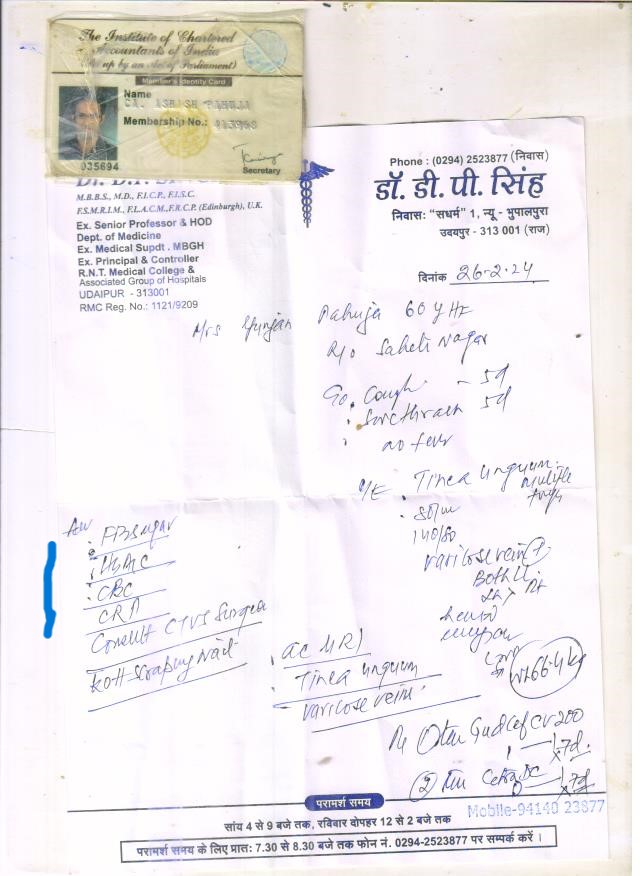 The Institute of Chartered
Accountants of India
(Set up by an Act of Parliament)
Member's Identity Card
Name
CA. ASHISH PAHUJA
Membership No.:
035694
Secretary
M.B.B.S., M.D., F.I.C.P., F.I.S.C.
F.S.M.R.I.M., F.I.A.C.M.,F.R.C.P. (Edinburgh), U.K.
Ex. Senior Professor & HOD
Dept. of Medicine
Ex. Medical Supdt . MBGH
Ex. Principal & Controller
R.N.T. Medical College &
Associated Group of Hospitals
UDAIPUR - 313001
RMC Reg. No.: 1121/9209
Phone : (0294) 2523877 (निवास)
डॉ. डी. पी. सिंह
निवास: "सधर्म" 1, न्यू - भुपालपुरा
उदयपुर - 313 001 (राज)
दिनांक 26-2-24
Mrs Gunjan Pahuja 60 y
R/o Saheli Nagar
Cough - 5d
Sore throat 5d
no fever
O/E Tinea unguum
multiple
140/80
varicose vein
Both
wt 66.4 kg
Adv
FB sugar
HbA1C
CBC
CRP
Consult CTVS Surgeon
KOH scraping Nail
AC URI
Tinea unguum
varicose vein
Rx ① Gudcef CV 200
x 7d.
② x 7d
परामर्श समय
Mobile-94140 23877
सांय 4 से 9 बजे तक, रविवार दोपहर 12 से 2 बजे तक
परामर्श समय के लिए प्रातः 7.30 से 8.30 बजे तक फोन नं. 0294-2523877 पर सम्पर्क करें ।